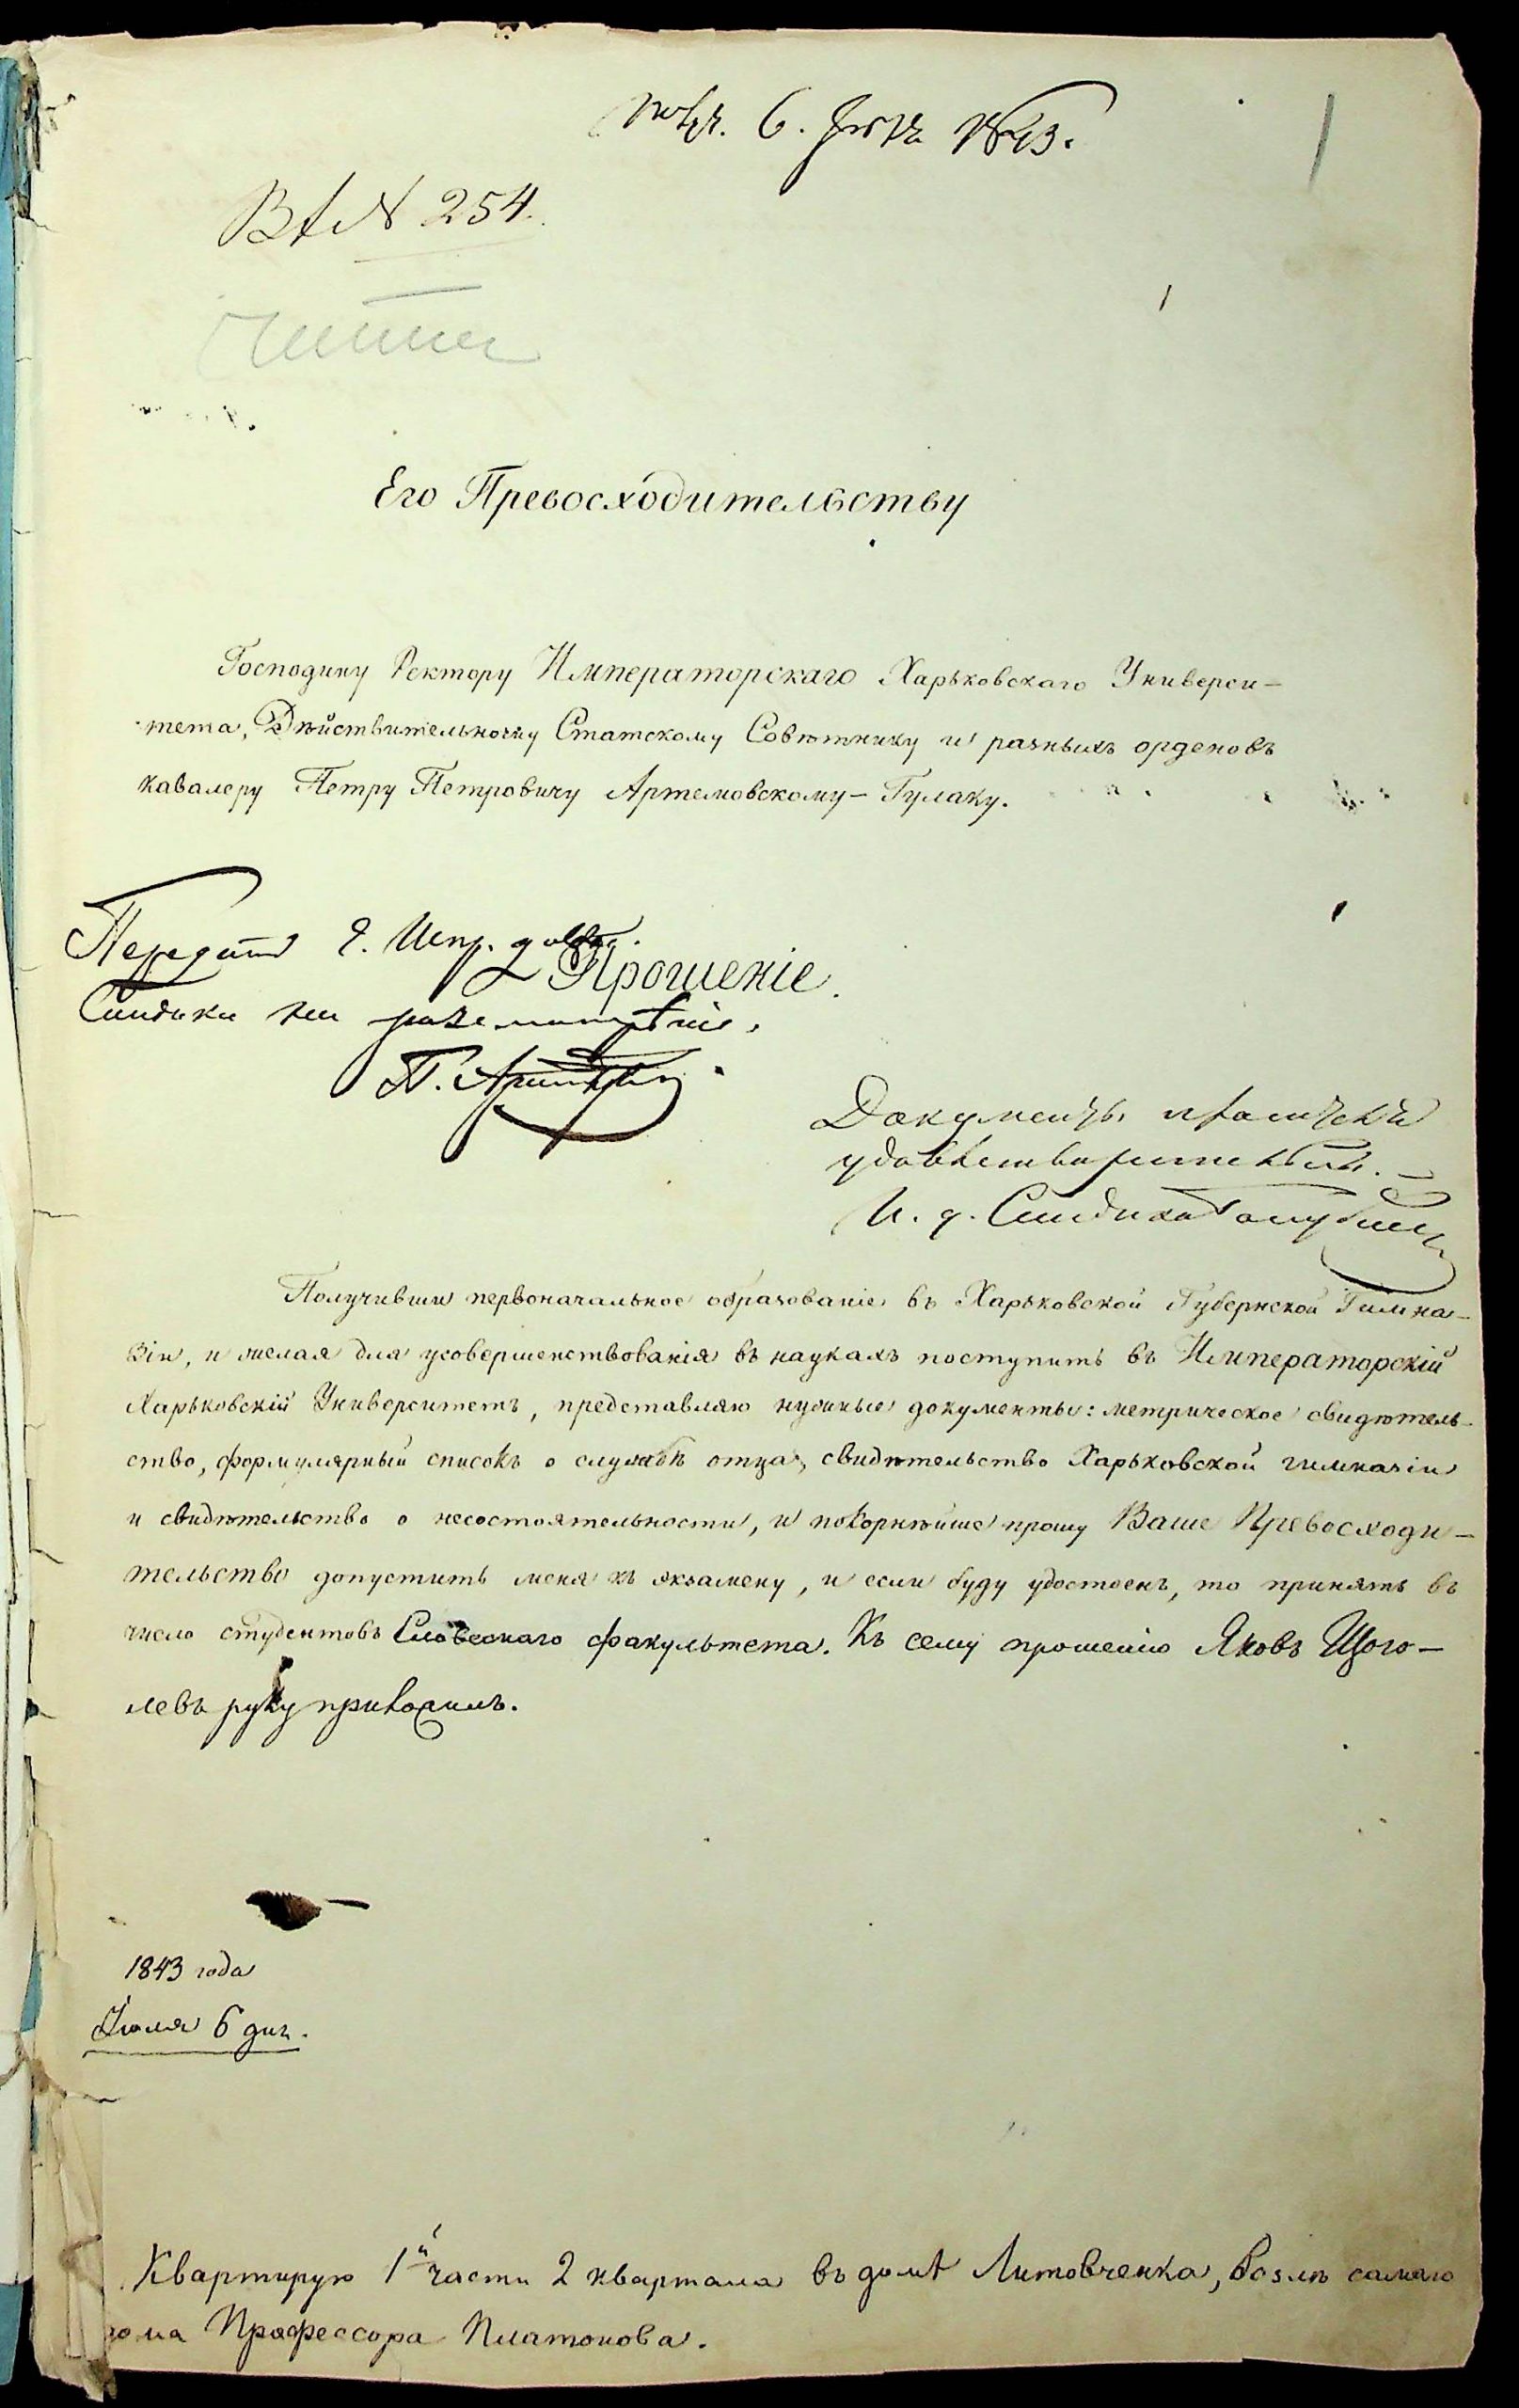 6. 1843.
№ 254.
Его Превосходительству
Господину Ректору Императорскаго Харьковскаго Универси-
тета, Дѣйствительному Статскому Совѣтнику и разныхъ орденовъ
кавалеру Петру Петровичу Артемовскому-Гулаку.
Передать Г. Испр. должн.
Прошеніе.
Синдика на разсмотрѣніе.
П. Артемовскій
Документы
удовлетворительны.
И. д. Синдика
Получивши первоначальное образованіе въ Харьковской Губернской Гимна-
зіи, и желая для усовершенствованія въ наукахъ поступить въ Императорскій
Харьковскій Университетъ, представляю нужные документы: метрическое свидѣтель-
ство, формулярный списокъ о службѣ отца, свидѣтельство Харьковской гимназіи
и свидѣтельство о несостоятельности, и покорнѣйше прошу Ваше Превосходи-
тельство допустить меня къ экзамену, и если буду удостоенъ, то принять въ
число студентовъ Словеснаго факультета. Къ сему прошенію Яковъ Щого-
левъ руку приложилъ.
1843 года
Іюля 6 дня.
Квартирую 1й части 2 квартала въ домѣ Литовченка, возлѣ самаго
дома Профессора Платонова.